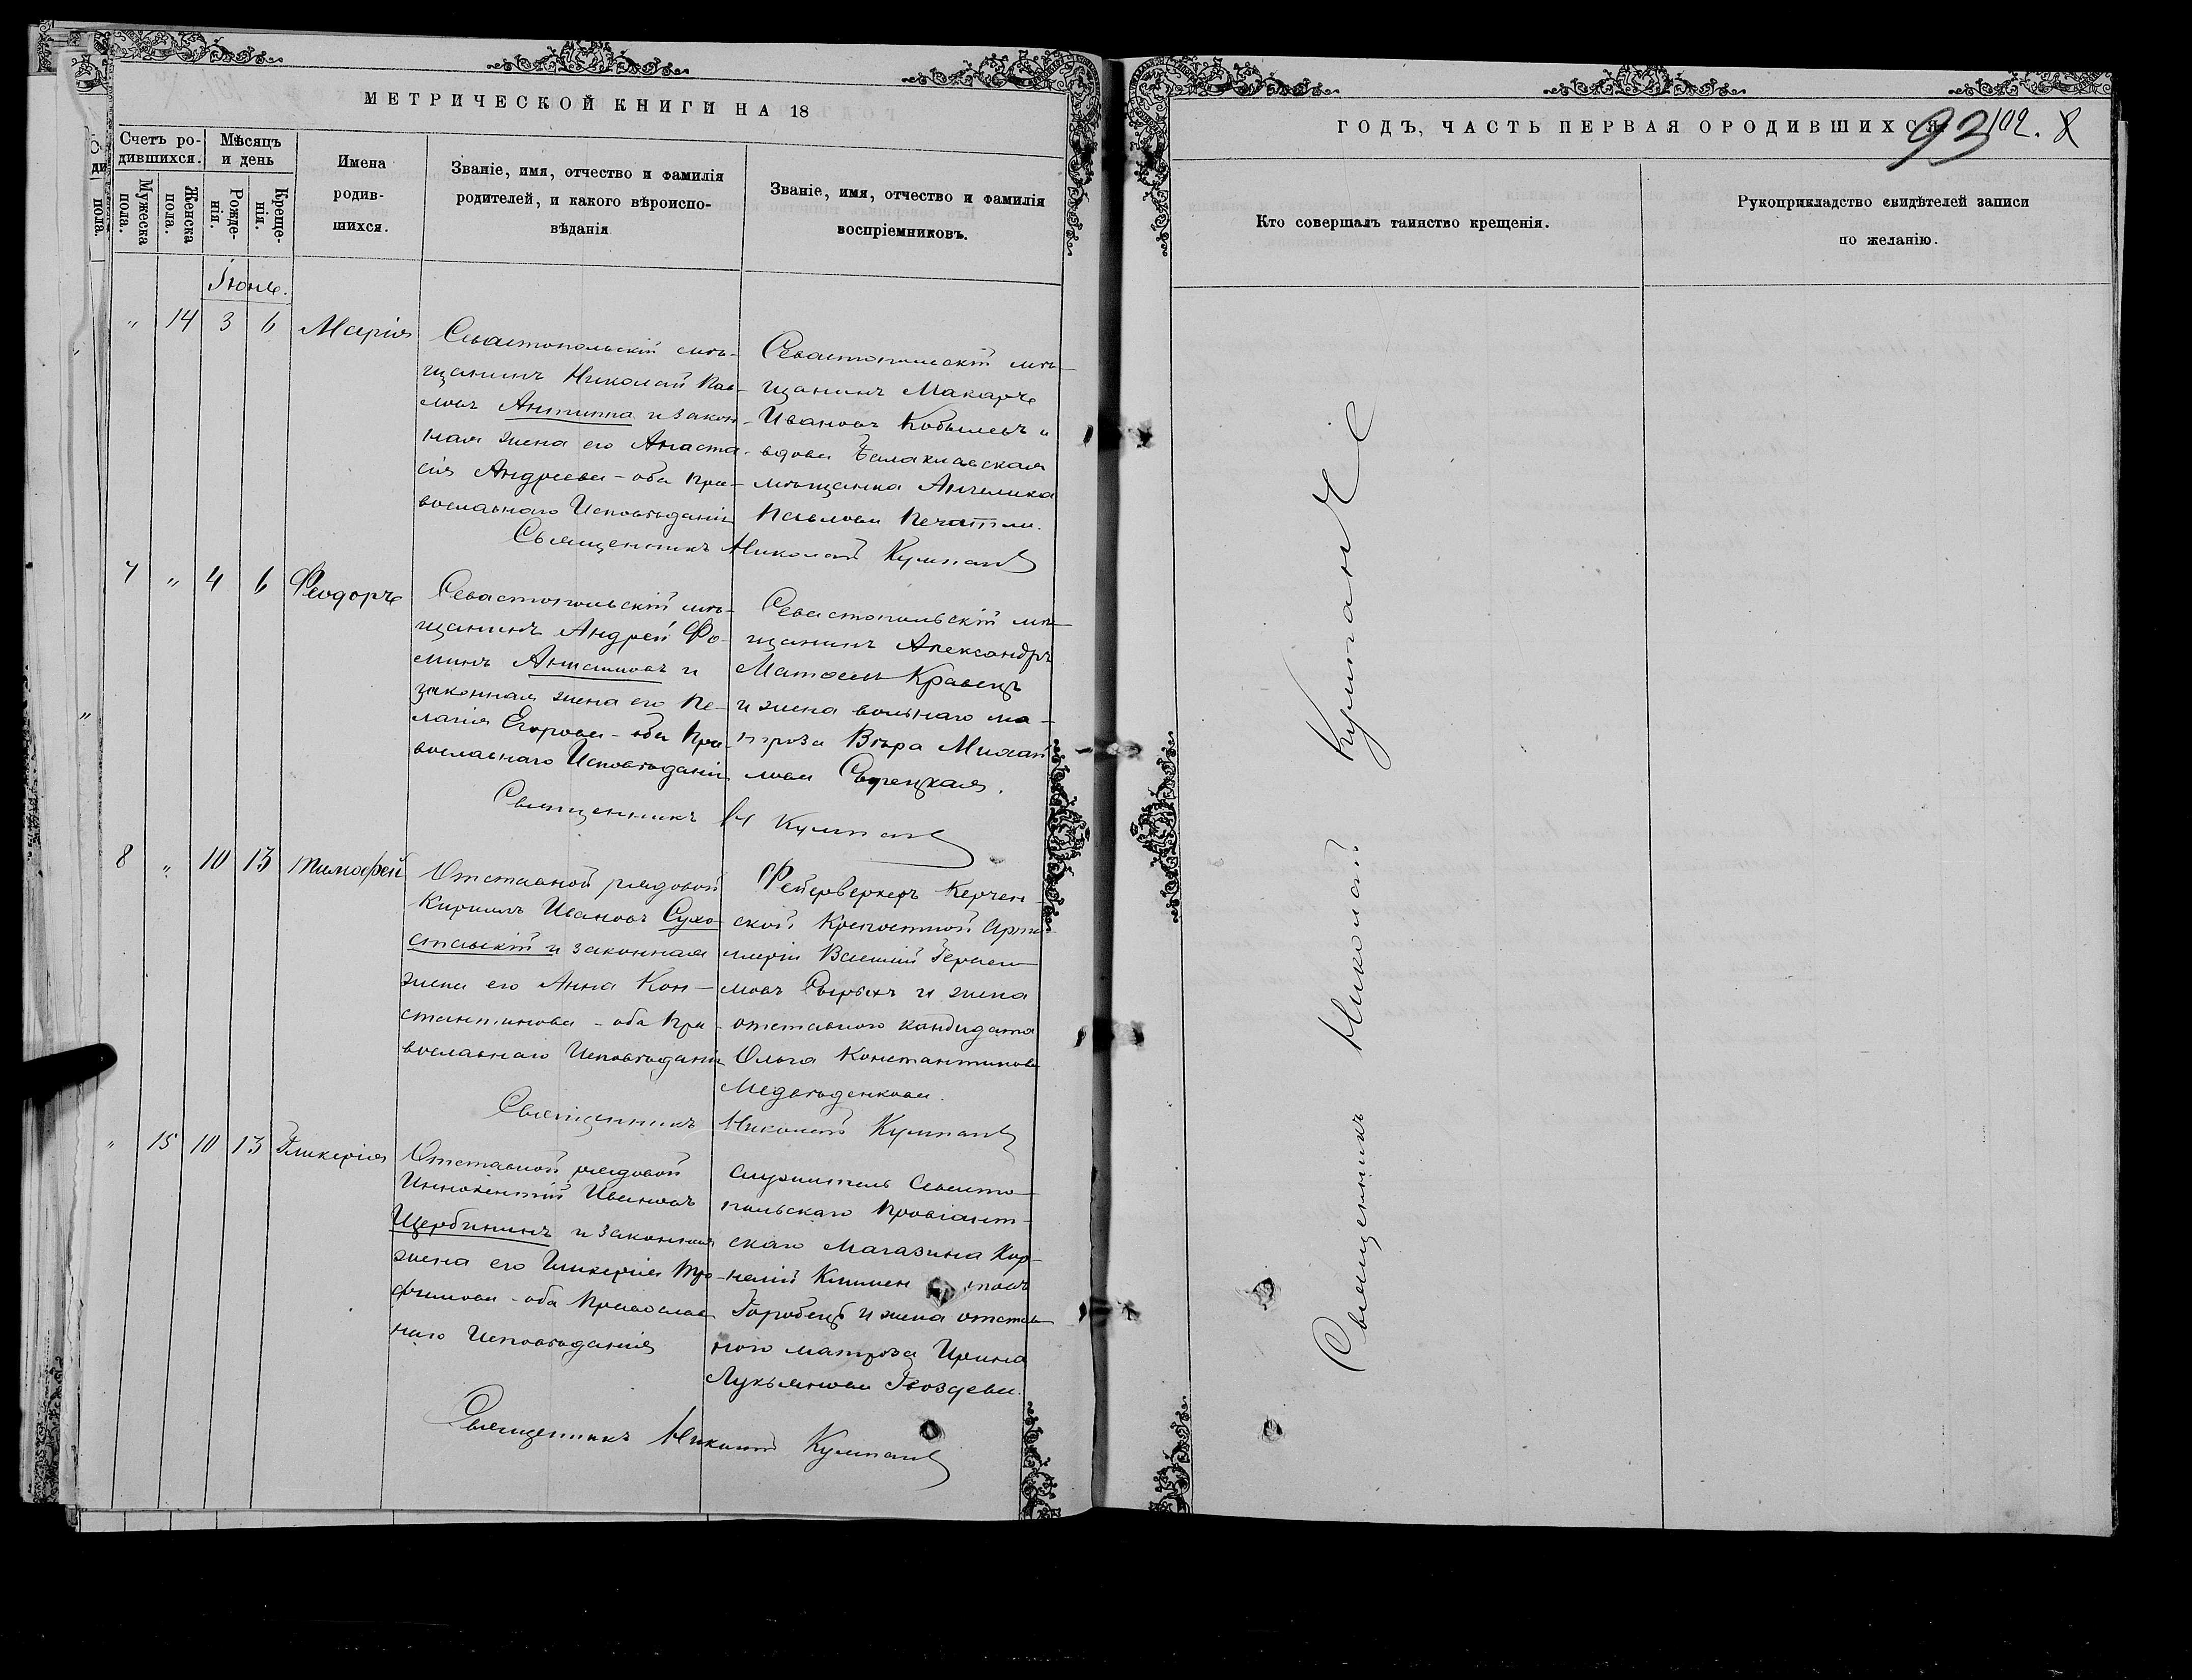 МЕТРИЧЕСКОЙ КНИГИ НА 18
Счетъ ро-
дившихся.
Мѣсяцъ
и день
Мужеска
пола.
Женска
пола.
Рожде-
нія.
Креще-
нія.
Имена
родив-
шихся.
Званіе, имя, отчество и фамилія
родителей, и какого вѣроиспо-
вѣданія
Званіе, имя, отчество и фамилія
воспріемниковъ.
Іюнь.
" 14 3 6 Марія
Севастопольскій мѣ-
щанинъ Николай Пав-
ловъ Антипа и закон-
ная жена его Анаста-
сія Андреева - оба пра-
вославнаго Исповѣданія
Севастопольскій мѣ-
щанинъ Макаръ
Ивановъ Кобылевъ и
вдова Балаклавская
мѣщанка Ангелика
Павлова
Священникъ Николай
7 " 4 6 Феодоръ
Севастопольскій мѣ-
щанинъ Андрей Фо-
минъ и
законная жена его Пе-
лагія Егорова - оба Пра-
вославнаго Исповѣданія
Севастопольскій мѣ-
щанинъ Александръ
Матвеевъ Кравецъ
и жена вольнаго ма-
троза Вѣра Михай
лова
Священникъ Н
8 " 10 13 Тимофей
Отставной рядовой
Кириллъ Ивановъ Сухо-
ставскій и законная
жена его Анна Кон-
стантинова - оба Пра-
вославнаго Исповѣданія
Фейерверкеръ Керчен-
ской Крепостной Арти-
лерій Василій Гераси-
мовъ и жена
отставного кандидата
Ольга Константинова
Медвѣденкова.
Священникъ Николай
" 15 10 13 Гликерія
Отставной рядовой
Иннокентій Ивановъ
Щербининъ и законная
жена его Гликерія Тро-
фимова - оба Православ
наго Исповѣданія
служитель Севасто-
польскаго Провіант-
скаго магазина Кор-
нелій
Горобецъ и жена отстав-
ного матроза Ирина
Лукьянова Гвоздева.
Священникъ Николай
ГОДЪ, ЧАСТЬ ПЕРВАЯ О РОДИВШИХСЯ
93 102.
Кто совершалъ таинство крещенія.
Рукоприкладство свидѣтелей записи
по желанію.
Священникъ Николай